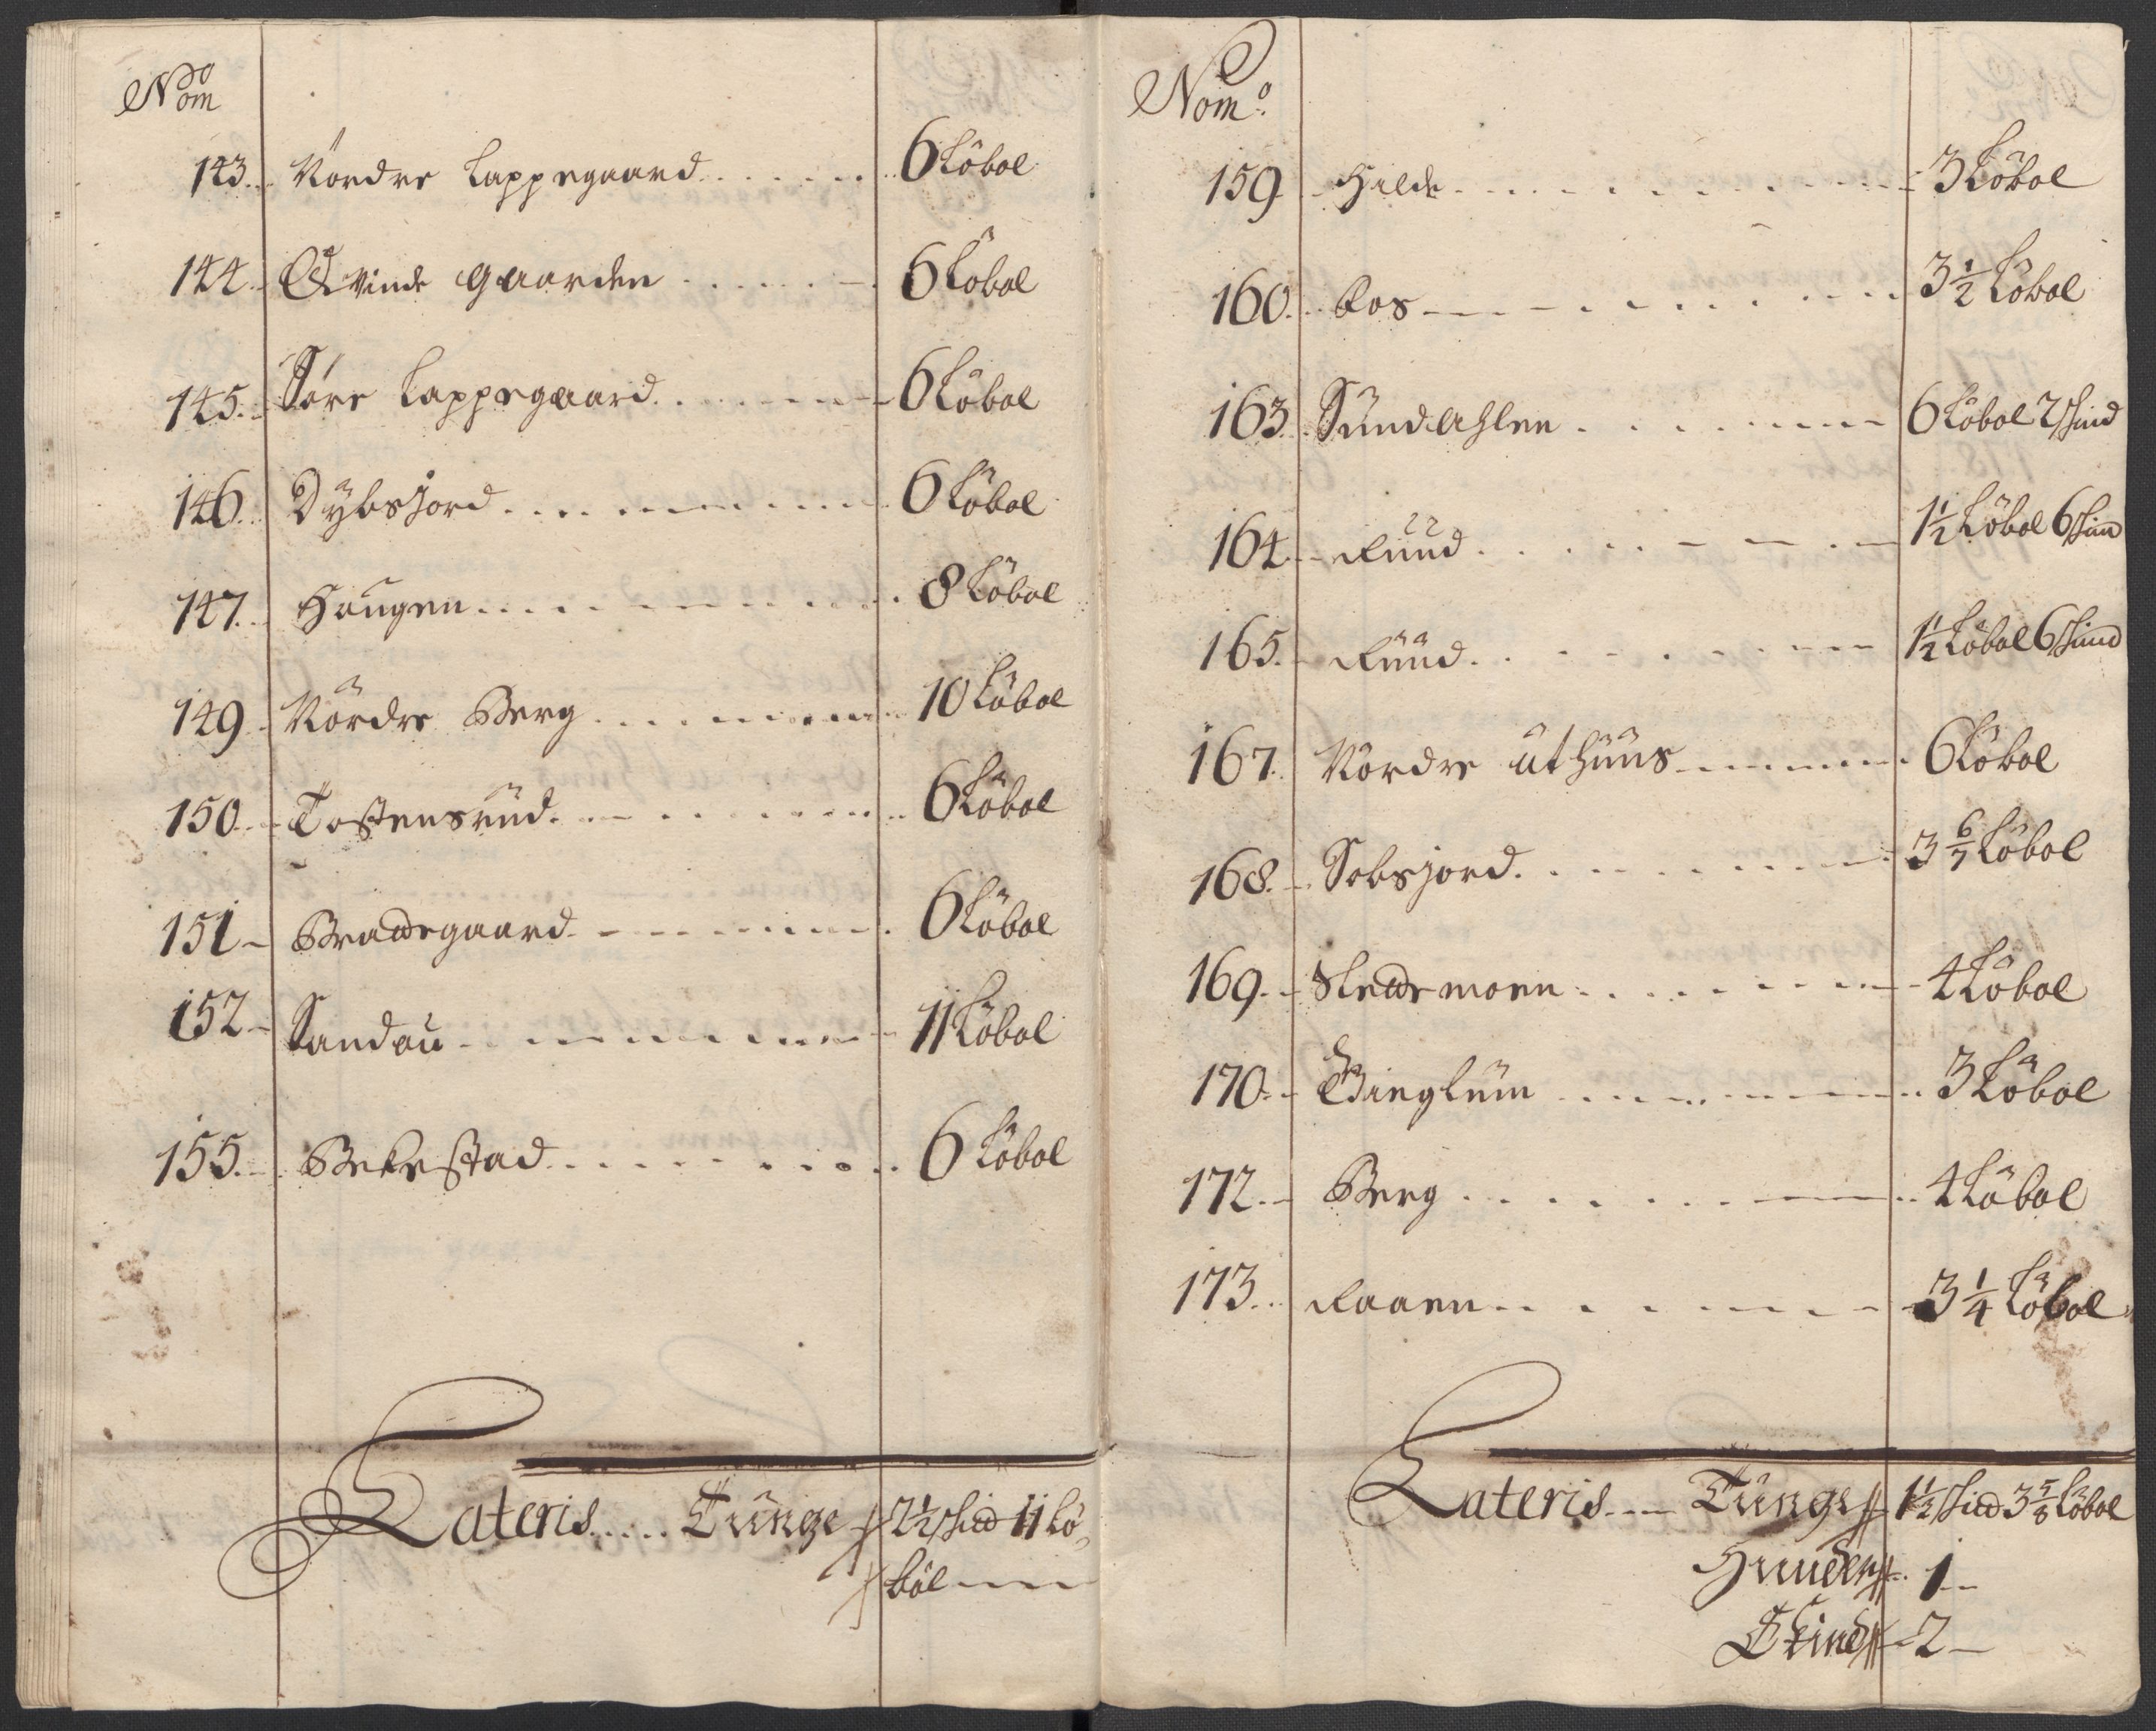 Nom
143. Nordre Lappegaard 6 Löbol
144. Öivinde gaarden 6 Löbol
145. Söre Lappegaard 6 Löbol
146. Dybsjord 6 Löbol
147. Haugen 8 Löbol
149 Nordre Berg 10 Löbol
150. Tostensrud 6 Löbol
151 Braadegaard 6 Löbol
152 Sandau 11 Löbol
155. Bekestad 6 Löbol
Lateris Tunge 2½ skid 11 Lö-
böl
Nomo
159 Hilde 3 Löbol
160. Aas 3½ Löbol
163 Sundahlen 6 Löbol 2 skind
164 Ruud 1½ Löbol 6 skind
165. Ruud 1½ Löbol 6 skind
167. Nordre uthuus 6 Löbol
168. Sobsjord 3 6/7 Löbol
169. Slettemoen 4 Löbol
170 Tinglum 3 Löbol
172 Berg 4 Löbol
173. Raaen 3¼ Löbol
Lateris Tunge 1½ skid 3⅝ Löbol
Huuder 1
Skind 2